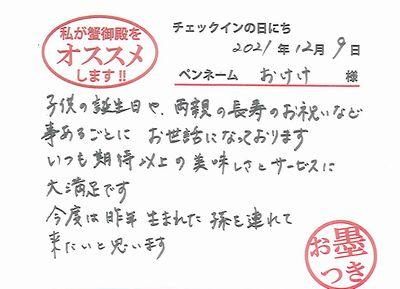 私が蟹御殿を
オススメ
します!!
チェックインの日にち
2021年12月9日
ペンネーム おけけ 様
子供の誕生日や、両親の長寿のお祝いなど
事あるごとに お世話になっております
いつも期待以上の美味しさとサービスに
大満足です
今度は昨年生まれた孫を連れて
来たいと思います
お墨
つき